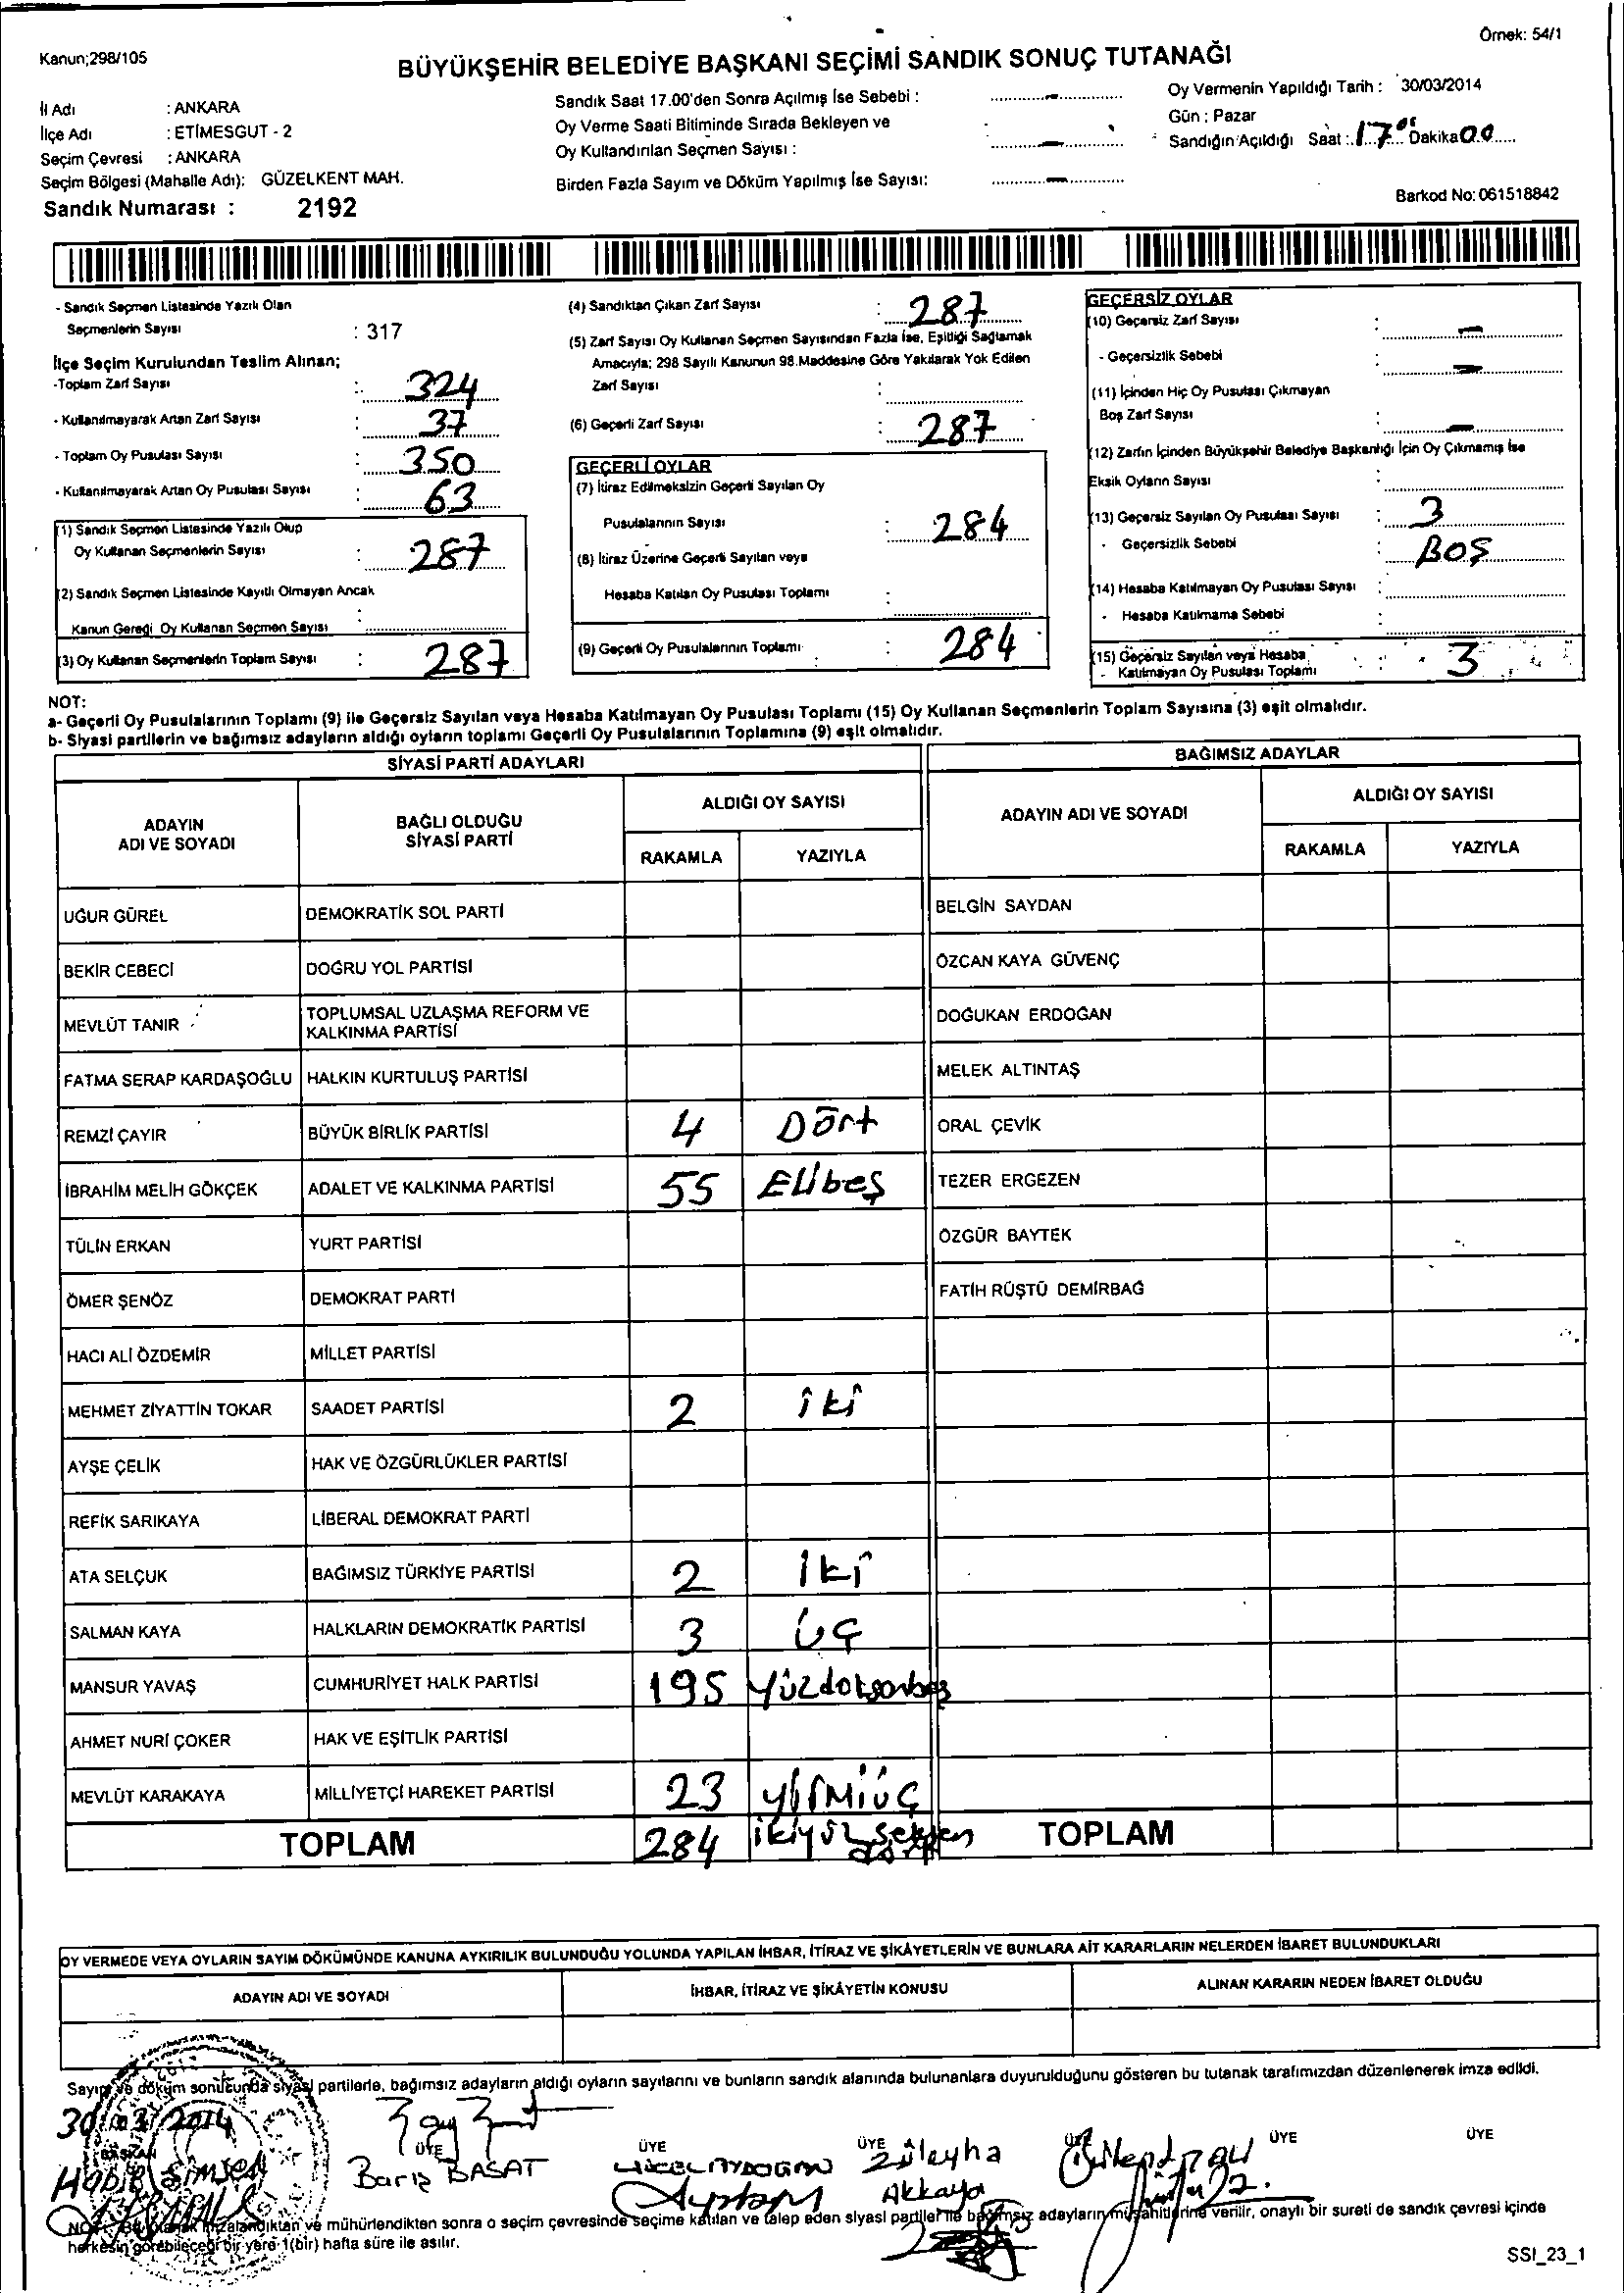 Örnek: 54/1
Kanun;298/105
BÜYÜKŞEHİR BELEDİYE BAŞKANI SEÇİMİ SANDIK SONUÇ TUTANAĞI
İl Adı : ANKARA
İlçe Adı : ETİMESGUT - 2
Seçim Çevresi : ANKARA
Seçim Bölgesi (Mahalle Adı): GÜZELKENT MAH.
Sandık Numarası : 2192
Sandık Saat 17.00'den Sonra Açılmış İse Sebebi :
Oy Verme Saati Bitiminde Sırada Bekleyen ve
Oy Kullandırılan Seçmen Sayısı :
Birden Fazla Sayım ve Döküm Yapılmış İse Sayısı:
Oy Vermenin Yapıldığı Tarih : 30/03/2014
Gün : Pazar
Sandığın Açıldığı Saat : 17 Dakika 00
Barkod No: 061518842
- Sandık Seçmen Listesinde Yazılı Olan
Seçmenlerin Sayısı : 317
İlçe Seçim Kurulundan Teslim Alınan;
-Toplam Zarf Sayısı : 324
- Kullanılmayarak Artan Zarf Sayısı : 37
- Toplam Oy Pusulası Sayısı : 350
- Kullanılmayarak Artan Oy Pusulası Sayısı : 63
(1) Sandık Seçmen Listesinde Yazılı Olup
Oy Kullanan Seçmenlerin Sayısı : 287
(2) Sandık Seçmen Listesinde Kayıtlı Olmayan Ancak
Kanun Gereği Oy Kullanan Seçmen Sayısı :
(3) Oy Kullanan Seçmenlerin Toplam Sayısı : 287
(4) Sandıktan Çıkan Zarf Sayısı : 287
(5) Zarf Sayısı Oy Kullanan Seçmen Sayısından Fazla İse, Eşitliği Sağlamak
Amacıyla; 298 Sayılı Kanunun 98.Maddesine Göre Yakılarak Yok Edilen
Zarf Sayısı :
(6) Geçerli Zarf Sayısı : 287
GEÇERLİ OYLAR
(7) İtiraz Edilmeksizin Geçerli Sayılan Oy
Pusulalarının Sayısı : 284
(8) İtiraz Üzerine Geçerli Sayılan veya
Hesaba Katılan Oy Pusulası Toplamı :
(9) Geçerli Oy Pusulalarının Toplamı : 284
GEÇERSİZ OYLAR
(10) Geçersiz Zarf Sayısı : -
- Geçersizlik Sebebi : -
(11) İçinden Hiç Oy Pusulası Çıkmayan
Boş Zarf Sayısı : -
(12) Zarfın İçinden Büyükşehir Belediye Başkanlığı İçin Oy Çıkmamış İse
Eksik Oyların Sayısı :
(13) Geçersiz Sayılan Oy Pusulası Sayısı : 3
- Geçersizlik Sebebi : BOŞ
(14) Hesaba Katılmayan Oy Pusulası Sayısı :
- Hesaba Katılmama Sebebi :
(15) Geçersiz Sayılan veya Hesaba
- Katılmayan Oy Pusulası Toplamı : 3
NOT:
a- Geçerli Oy Pusulalarının Toplamı (9) ile Geçersiz Sayılan veya Hesaba Katılmayan Oy Pusulası Toplamı (15) Oy Kullanan Seçmenlerin Toplam Sayısına (3) eşit olmalıdır.
b- Siyasi partilerin ve bağımsız adayların aldığı oyların toplamı Geçerli Oy Pusulalarının Toplamına (9) eşit olmalıdır.
SİYASİ PARTİ ADAYLARI
ADAYIN
ADI VE SOYADI
BAĞLI OLDUĞU
SİYASİ PARTİ
ALDIĞI OY SAYISI
RAKAMLA YAZIYLA
UĞUR GÜREL DEMOKRATİK SOL PARTİ
BEKİR CEBECİ DOĞRU YOL PARTİSİ
MEVLÜT TANIR TOPLUMSAL UZLAŞMA REFORM VE
KALKINMA PARTİSİ
FATMA SERAP KARDAŞOĞLU HALKIN KURTULUŞ PARTİSİ
REMZİ ÇAYIR BÜYÜK BİRLİK PARTİSİ 4 Dört
İBRAHİM MELİH GÖKÇEK ADALET VE KALKINMA PARTİSİ 55 Ellibeş
TÜLİN ERKAN YURT PARTİSİ
ÖMER ŞENÖZ DEMOKRAT PARTİ
HACI ALİ ÖZDEMİR MİLLET PARTİSİ
MEHMET ZİYATTİN TOKAR SAADET PARTİSİ 2 iki
AYŞE ÇELİK HAK VE ÖZGÜRLÜKLER PARTİSİ
REFİK SARIKAYA LİBERAL DEMOKRAT PARTİ
ATA SELÇUK BAĞIMSIZ TÜRKİYE PARTİSİ 2 iki
SALMAN KAYA HALKLARIN DEMOKRATİK PARTİSİ 3 üç
MANSUR YAVAŞ CUMHURİYET HALK PARTİSİ 195 Yüzdoksanbeş
AHMET NURİ ÇOKER HAK VE EŞİTLİK PARTİSİ
MEVLÜT KARAKAYA MİLLİYETÇİ HAREKET PARTİSİ 23 yirmiüç
TOPLAM 284 ikiyüzseksen
dört
BAĞIMSIZ ADAYLAR
ADAYIN ADI VE SOYADI
ALDIĞI OY SAYISI
RAKAMLA YAZIYLA
BELGİN SAYDAN
ÖZCAN KAYA GÜVENÇ
DOĞUKAN ERDOĞAN
MELEK ALTINTAŞ
ORAL ÇEVİK
TEZER ERGEZEN
ÖZGÜR BAYTEK
FATİH RÜŞTÜ DEMİRBAĞ
TOPLAM
OY VERMEDE VEYA OYLARIN SAYIM DÖKÜMÜNDE KANUNA AYKIRILIK BULUNDUĞU YOLUNDA YAPILAN İHBAR, İTİRAZ VE ŞİKÂYETLERİN VE BUNLARA AİT KARARLARIN NELERDEN İBARET BULUNDUKLARI
ADAYIN ADI VE SOYADI İHBAR, İTİRAZ VE ŞİKÂYETİN KONUSU ALINAN KARARIN NEDEN İBARET OLDUĞU
Sayım ve döküm sonucunda siyasi partilerle, bağımsız adayların aldığı oyların sayılarını ve bunların sandık alanında bulunanlara duyurulduğunu gösteren bu tutanak tarafımızdan düzenlenerek imza edildi.
30/03/2014
BAŞKAN ÜYE ÜYE ÜYE ÜYE ÜYE ÜYE
Habib Şimşek
Barış BASAT
Züleyha
Akkaya
NOT: Bu tutanak imzalandıktan ve mühürlendikten sonra o seçim çevresinde seçime katılan ve talep eden siyasi partiler ile bağımsız adayların müşahitlerine verilir, onaylı bir sureti de sandık çevresi içinde
herkesin görebileceği bir yere 1(bir) hafta süre ile asılır.
SSI_23_1